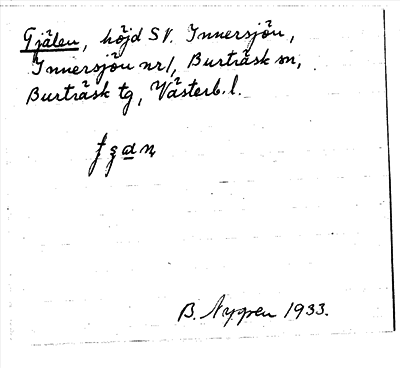 Gjälen, höjd SV. Innersjön,
Innersjön nr 1, Burträsk sn,
Burträsk tg, Västerb. l.
B. Nygren 1933.